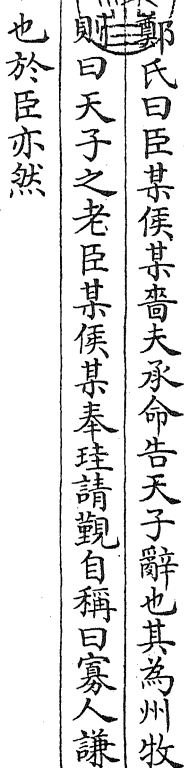 鄭氏曰臣某侯某嗇夫承命告天子辭也其為州牧
則曰天子之老臣某侯某奉珪請覲自稱曰寡人謙
也於臣亦然